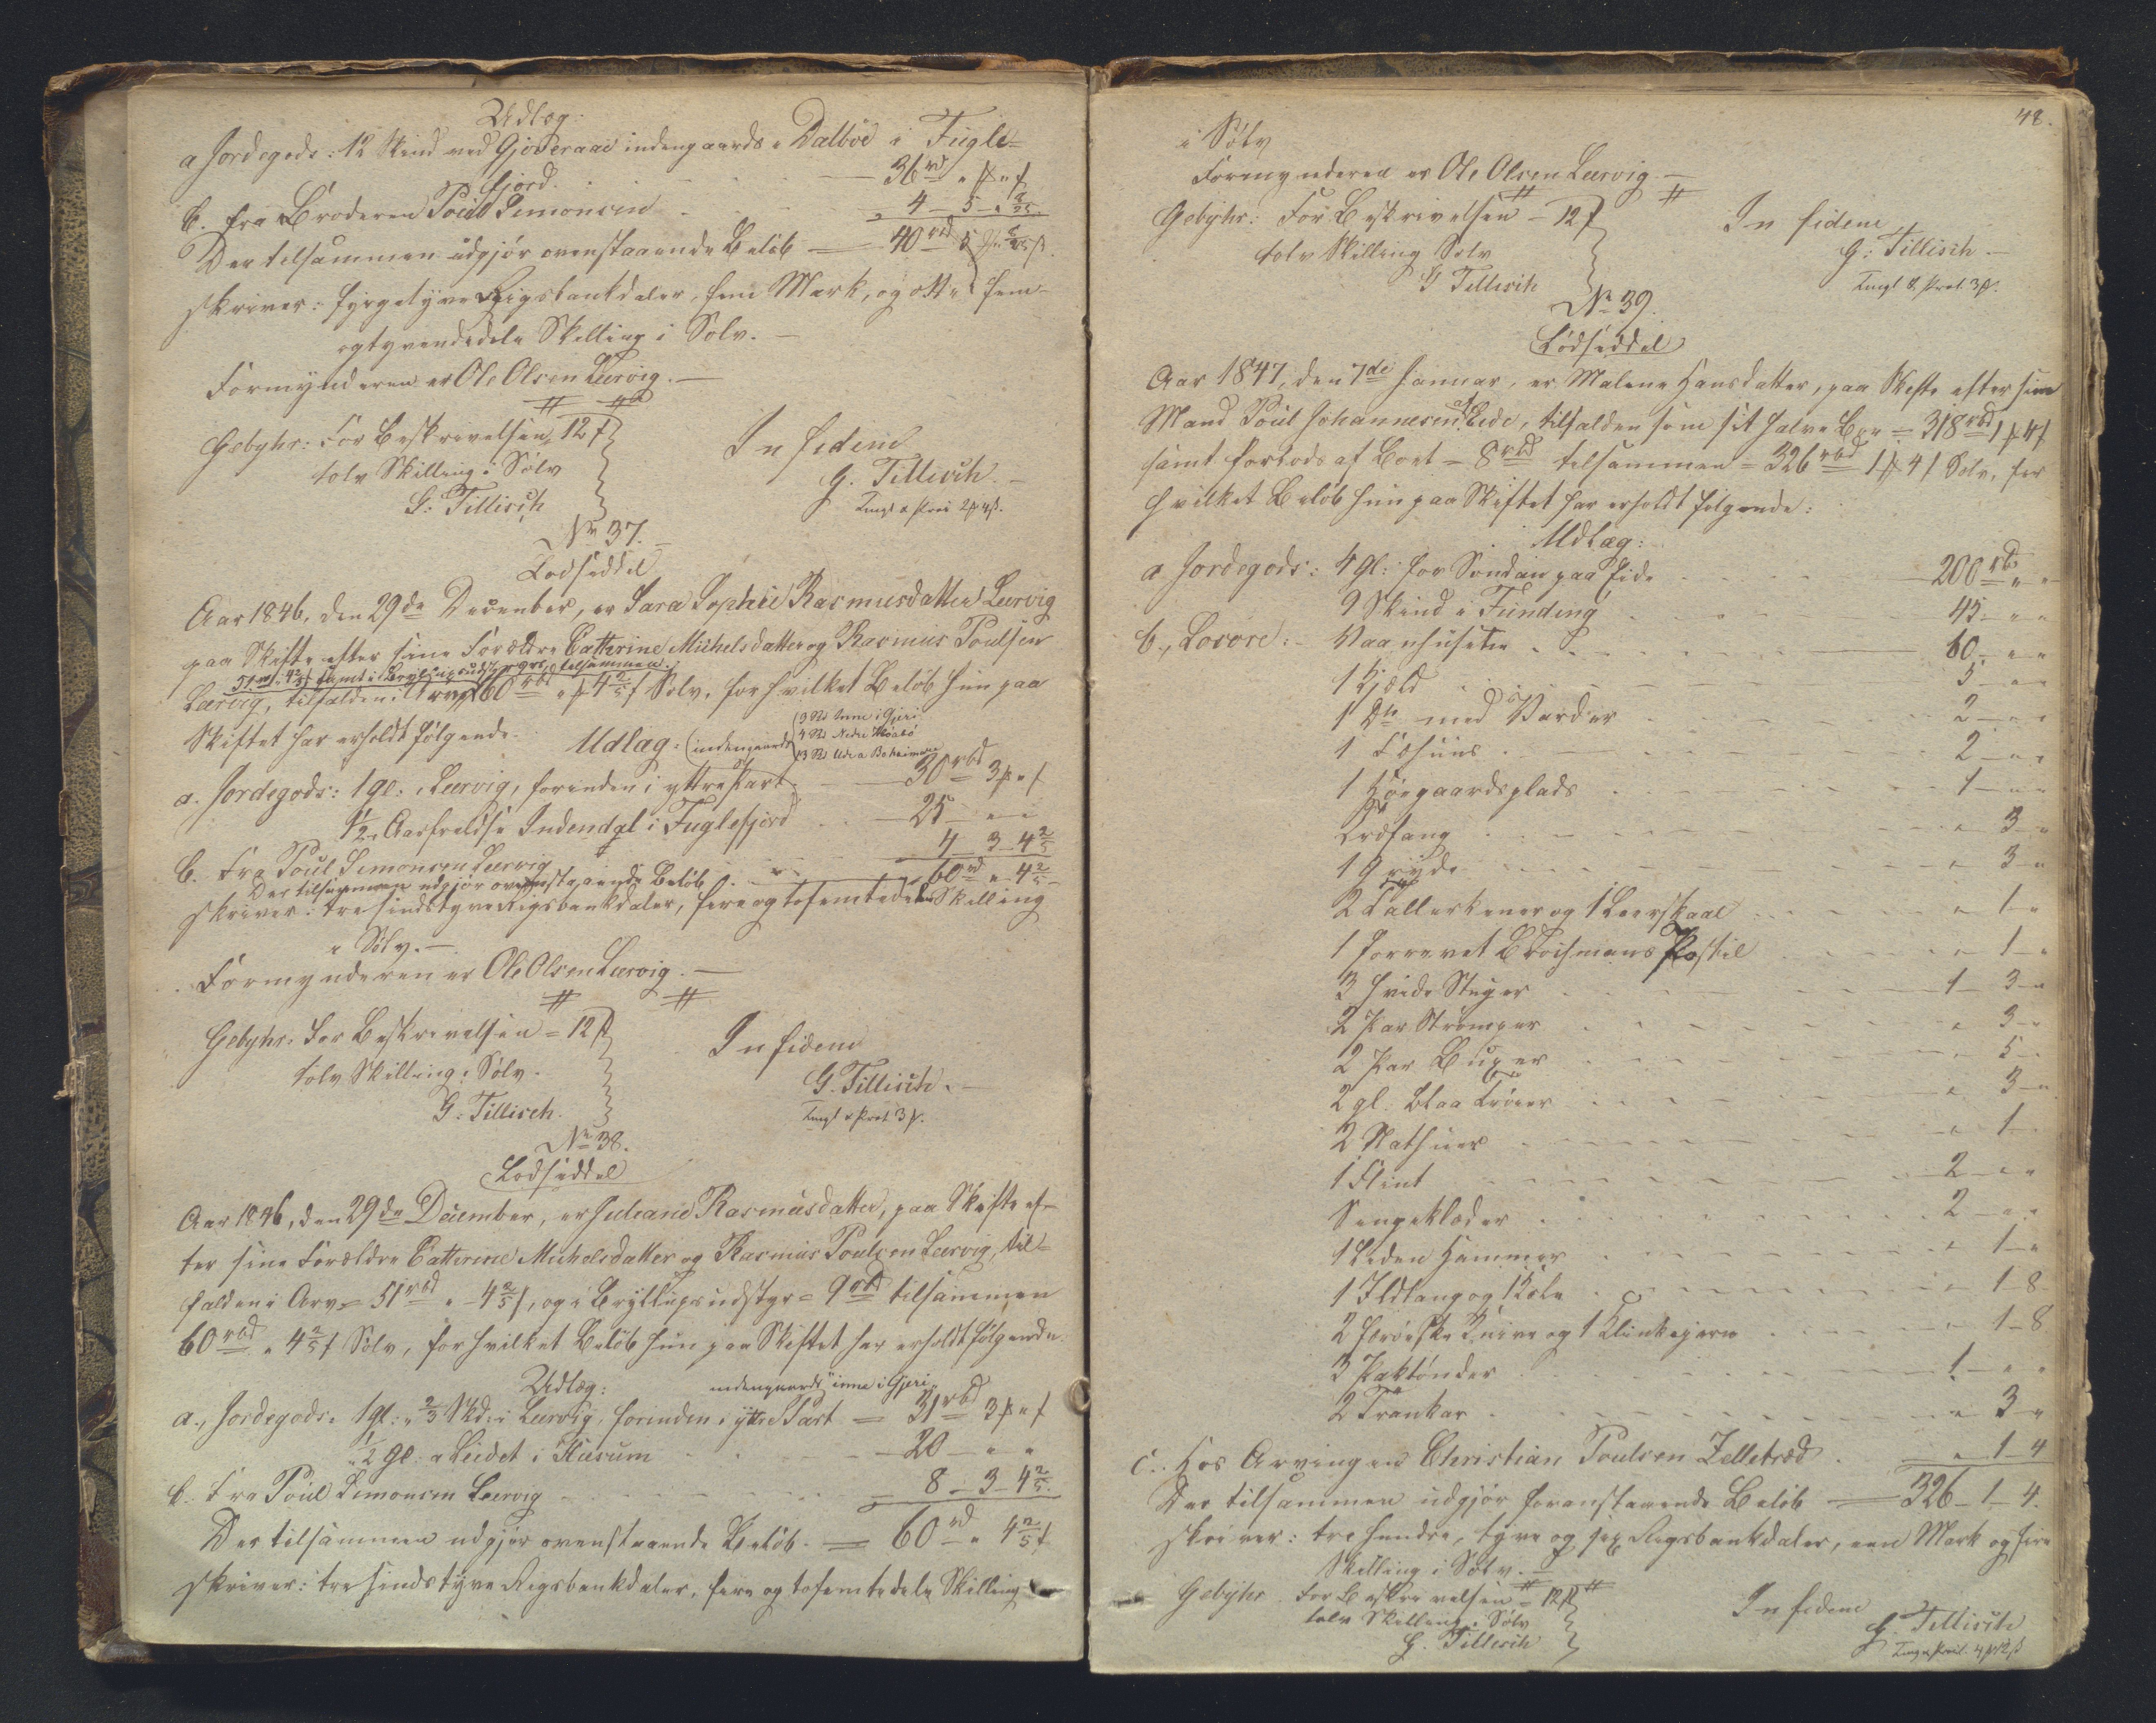 Udlæg:
a Jordegods: 12 Skind ved Gjøveraae indengaards i Dalbøe i Fugle-
fjord. 36 rd " "
b. fra Broderen Poul Simonsen 4 - 5 - 8/25
Der tilsammen udgjør ovenstaaende Beløb — 40 rbd 5 8/25 ß.
skriver: fyrgetyve Rigsbankdaler, fem Mark, og otte fem-
ogtyvendedele Skilling i Sølv. —
Formynderen er Ole Olsen Leervig. —
Gebyhr: For Beskrivelsen 12 ß
tolv Skilling i Sølv
G: Tillisch
In fidem
G. Tillisch. —
No 37. —
Lodseddel
Aar 1846, den 29de December, er Sara Sophie Rasmusdatter Leervig
paa Skifte efter sine Forældre Cathrine Michelsdatter og Rasmus Poulsen
51 rd " 4 2/5 ß samt i Bryllupsudstyr 9 rd, tilsammen
Leervig, tilfalden i Arv 60 rbd " 4 2/5 ß Sølv, for hvilket Beløb hun paa
Skiftet har erholdt følgende.
Udlæg: (indengaards
3 Sk Inne i Gjeri
4 Sk Nedri
13 Sk
a. Jordegods: 1 gl: i Leervig, forinden i yttre Part 30 rbd 3 " ß
1/2 Aarfredse Indendgl i Fuglefjord 25 - " - "
b. Fra Poul Simonsen Leervig 4 - 3 - 4 2/5
Der tilsammen udgjør ovenstaaende Beløb 60 rd " 4 2/5
skriver: tresindstyve Rigsbankdaler, fire og tofemtedele Skilling
i Sølv. —
Formynderen er Ole Olsen Leervig. —
Gebyhr: For Beskrivelsen = 12 ß
tolv Skilling i Sølv.
G: Tillisch.
In fidem
G. Tillisch. —
No 38.
Lodseddel
Aar 1846, den 29de December, er Juliane Rasmusdatter, paa Skifte ef-
ter sine Forældre Cathrine Michelsdatter og Rasmus Poulsen Leervig, til-
falden i Arv = 51 rbd " 4 2/5 ß, og i Bryllupsudstyr = 9 rbd tilsammen
60 rbd " 4 2/5 ß Sølv, for hvilket Beløb hun paa Skiftet har erholdt følgende
Udlæg:
indengaards "inne i Gjeri"
a., Jordegods: 1 gl: " 2/3 Skd: i Leervig, forinden i yttre Part = 31 rbd 3 " ß
" 1/2 gl: a Leidet i Husum — 20 — " "
b. Fra Poul Simonsen Leervig = 8 - 3 - 4 2/5.
Der tilsammen udgjør ovenstaaende Beløb. = 60 rd " 4 2/5 ß
skriver: tresindstyve Rigsbankdaler, fire og tofemtedele Skilling
48.
i Sølv
Formynderen er Ole Olsen Leervig —
Gebyhr: For Beskrivelsen = 12 ß
tolv Skilling Sølv
G Tillisch
In fidem
G: Tillisch —
No 39.
Lodseddel
Aar 1847, den 7de Januar, er Malene Hansdatter, paa Skifte efter sin
Mand Poul Johannesen af Eide, tilfalden som sit halve Boe = 318 rbd 1 4 ß
samt forlods af Boet = 8 rbd tilsammen = 326 rbd 1 4 ß Sølv, for
hvilket Beløb hun paa Skiftet har erholdt følgende:
Udlæg:
a. Jordegods: 4 gl: for Sondan paa Eide 200 rbd " "
9 Skind i Funding 45 - " "
b., Løsøre: Vaanhusene 60 - " "
1 Hjeld 5 - " "
1 Do med 2 - " "
1 2 - " "
1 Høegaardsplads 1 - " "
" 3 - "
1 Gryde " 3 - "
2 Tallerkener og 1 Leerskaal " 1 - "
1 forrevet Brochmans Postil " 1 - "
3 hvide 1 - 3 - "
2 Par Strømper " 3 - "
2 Par Buxer " 5 -
2 gl. blaa Trøier " 3 - "
2 Nathuer " 1 -
1 Flint 2 - " "
Sengeklæder 2 - " "
1 Liden Hammer " 1 - "
1 Ildtang og 1 " 1 - 8
2 færøiske Knive og 1 Klinkejern " 1 - 8
3 1 - " "
2 Trankar " 3 - "
c. Hos Arvingen Christian Poulsen Zelletræd " 1 - 4
Der tilsammen udgjør foranstaaende Beløb — 326 - 1 - 4.
skriver: tre hundre, tyve og sex Rigsbankdaler, een Mark og fire
Skilling i Sølv. —
Gebyhr For Beskrivelsen = 12 ß
tolv Skilling i Sølv
G. Tillisch
In fidem
G. Tillisch